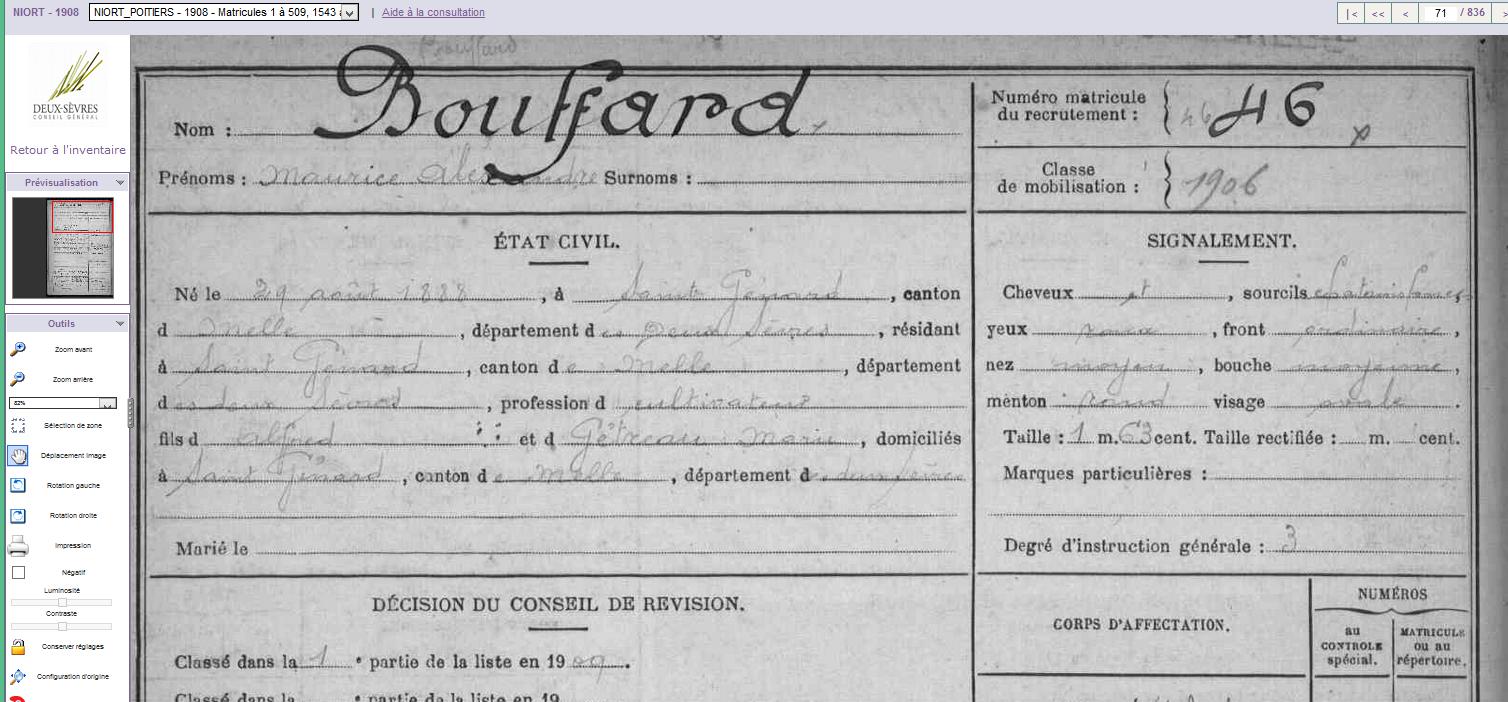 NIORT - 1908
NIORT_POITIERS - 1908 - Matricules 1 à 509, 1543
| Aide à la consultation
|< << < 71 / 836 >
DEUX-SÈVRES
CONSEIL GÉNÉRAL
Retour à l'inventaire
Prévisualisation
Outils
Zoom avant
Zoom arrière
82%
Sélection de zone
Déplacement image
Rotation gauche
Rotation droite
Impression
Négatif
Luminosité
Contraste
Conserver réglages
Configuration d'origine
Bouffard
Nom : Bouffard
Prénoms : Maurice Alexandre Surnoms :
Numéro matricule
du recrutement : 46 46
Classe
de mobilisation : 1906
ÉTAT CIVIL.
Né le 29 août 1888, à Saint Génard, canton
d Melle, département des Deux Sèvres, résidant
à Saint Génard, canton de Melle, département
des deux Sèvres, profession d cultivateur
fils d Alfred et d Gétreau Marie, domiciliés
à Saint Génard, canton de Melle, département d deux Sèvres
Marié le
SIGNALEMENT.
Cheveux et, sourcils chatains
yeux roux, front ordinaire,
nez moyen, bouche moyenne,
menton rond visage ovale.
Taille : 1 m. 63 cent. Taille rectifiée : m. cent.
Marques particulières :
Degré d'instruction générale : 3
DÉCISION DU CONSEIL DE REVISION.
Classé dans la 1e partie de la liste en 1909.
Classé dans la e partie de la liste en 19
CORPS D'AFFECTATION.
NUMÉROS
au
CONTROLE
spécial.
MATRICULE
ou au
répertoire.